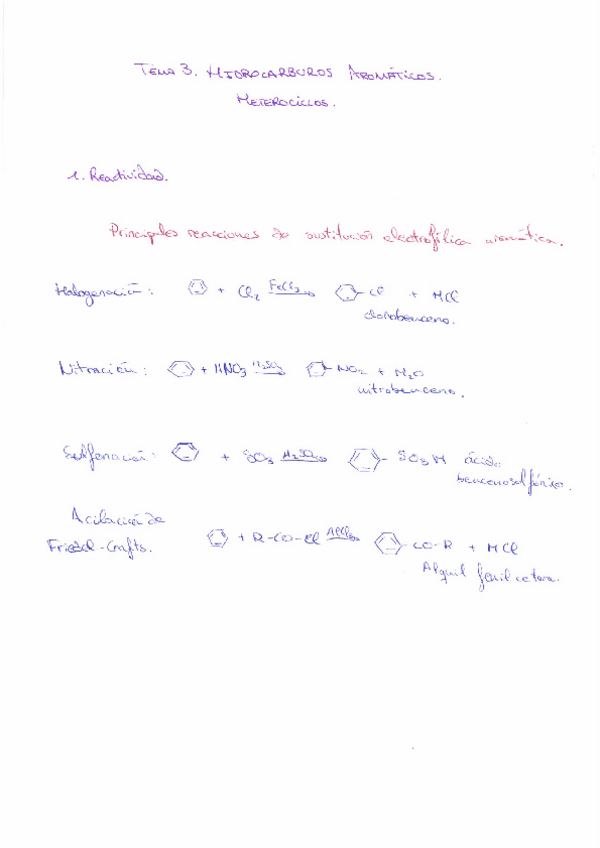 TEMA 3. HIDROCARBUROS AROMÁTICOS.
HETEROCICLOS.
1. Reactividad.
Principales reacciones de sustitución electrofílica aromática.
Halogenación: + Cl2 FeCl3 -Cl + HCl
clorobenceno.
Nitración: + HNO3 H2SO4 -NO2 + H2O
nitrobenceno.
Sulfonación: + SO3 H2SO4 -SO3H ácido
bencenosulfónico.
Acilación de
Friedel-Crafts. + R-CO-Cl AlCl3 -CO-R + HCl
Alquil fenil cetona.